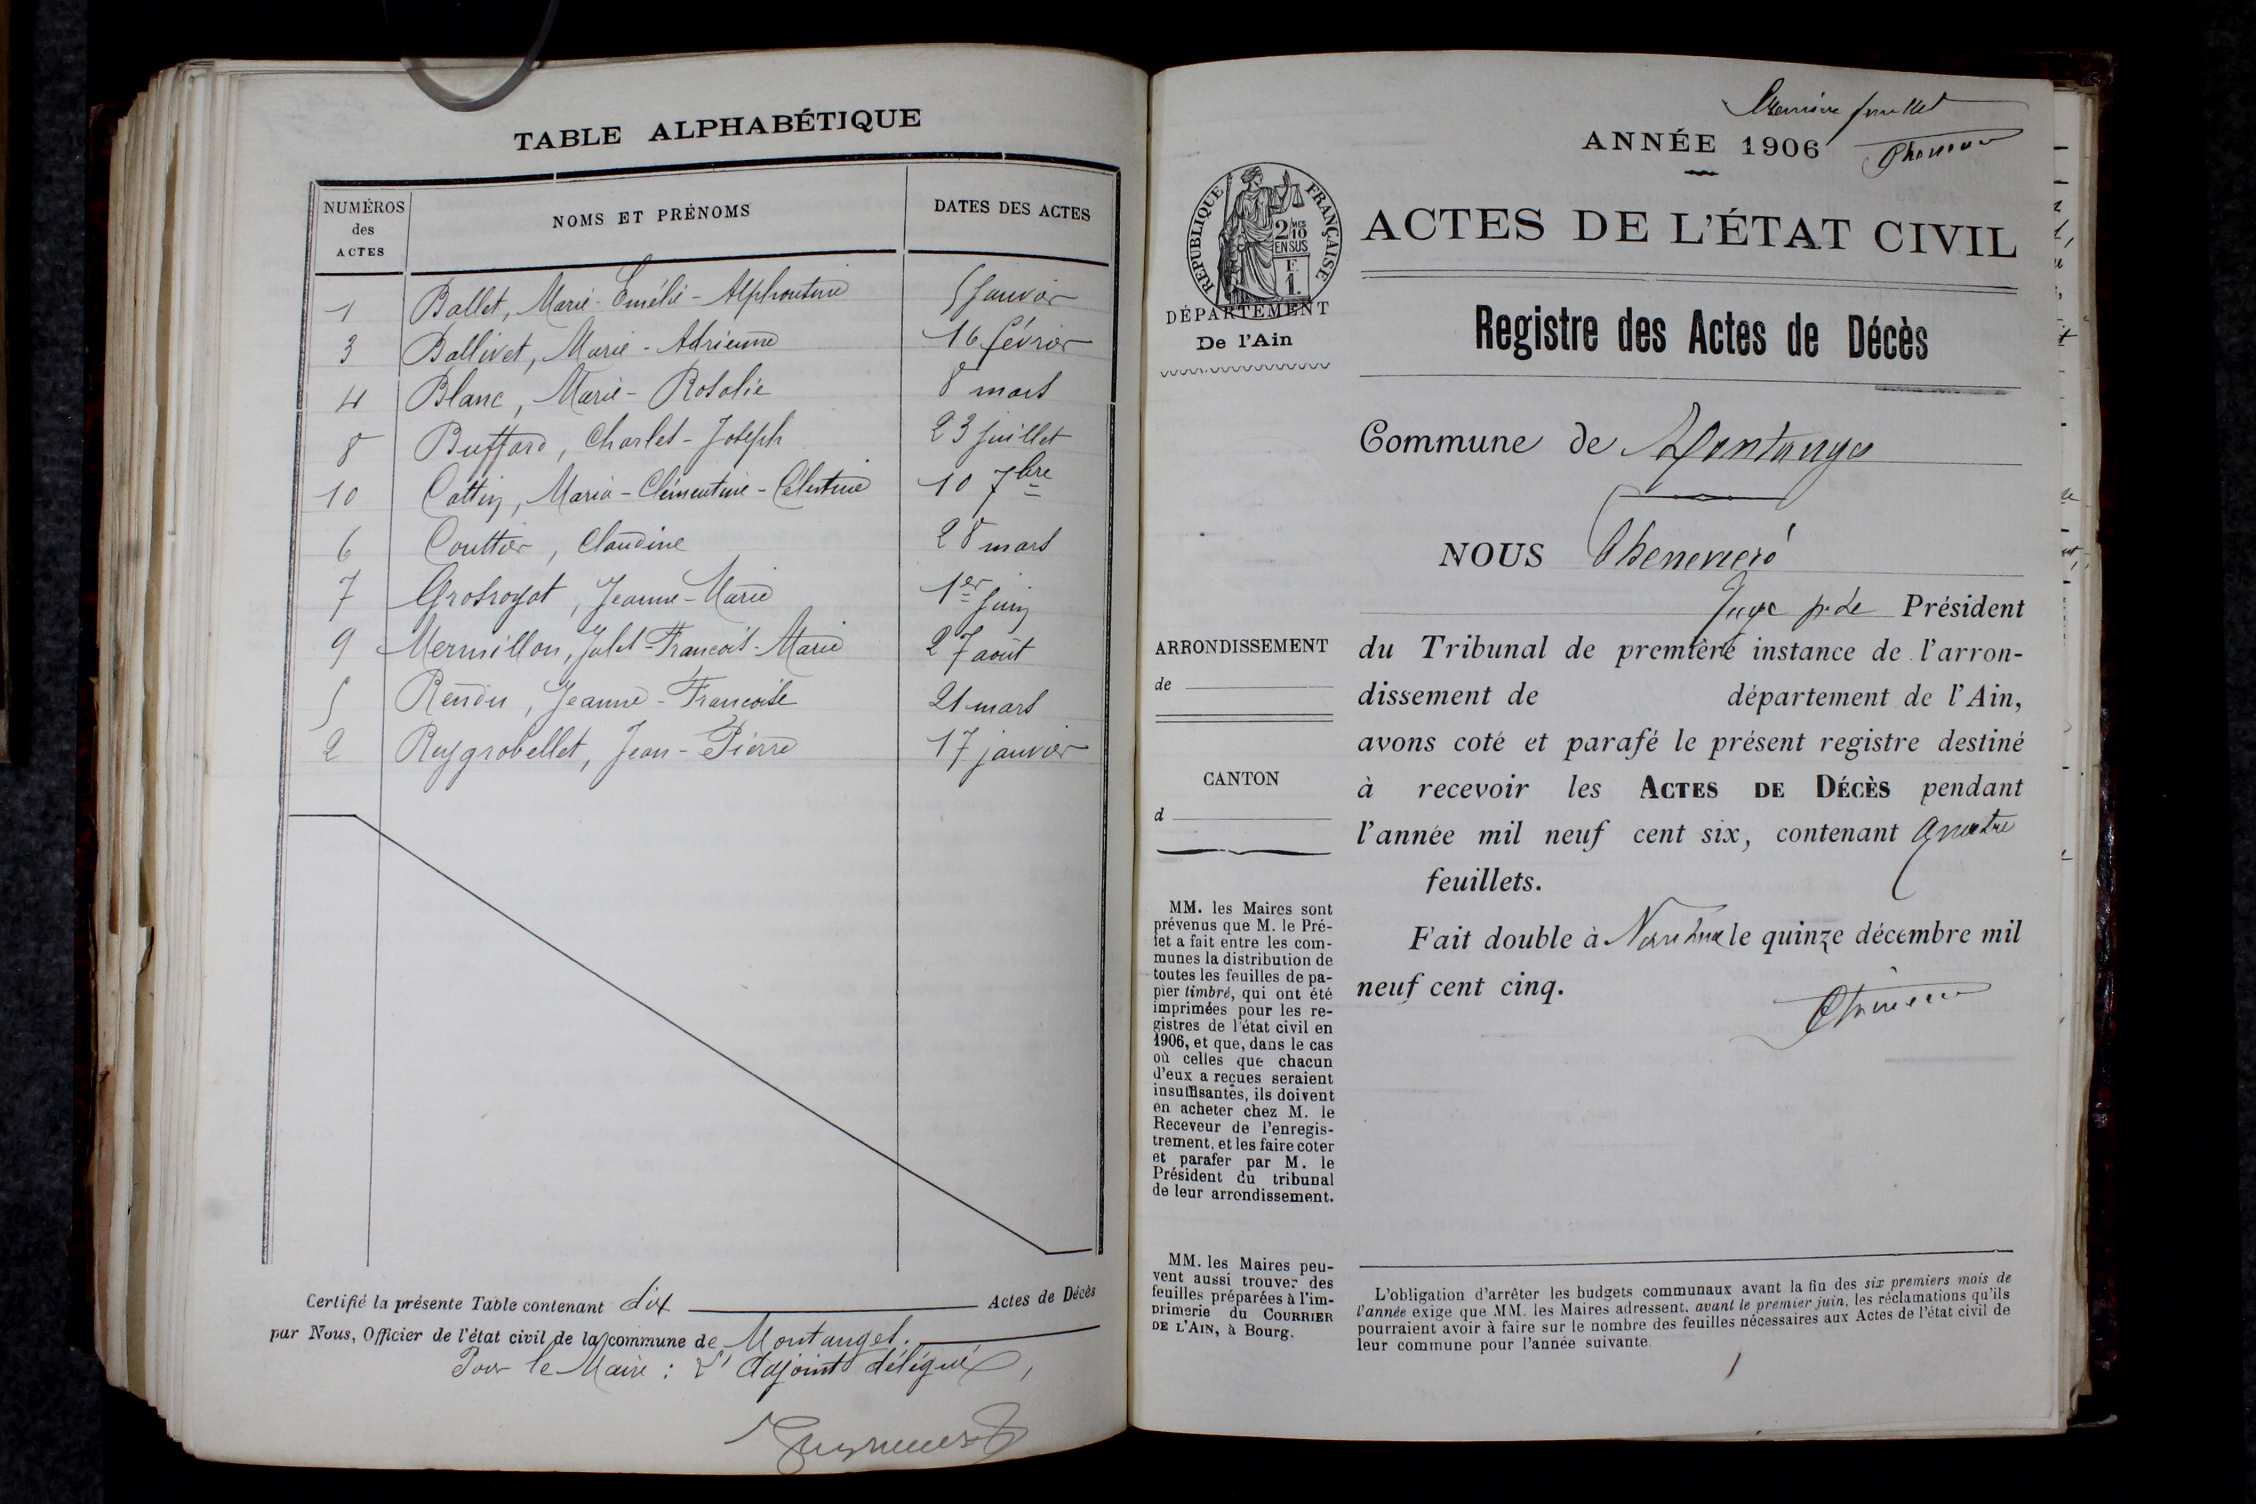 TABLE ALPHABÉTIQUE
NUMÉROS des ACTES
NOMS ET PRÉNOMS
DATES DES ACTES
1 Ballet, Marie-Emélie-Alphonsine 5 janvier
3 Ballivet, Marie-Adrienne 16 février
4 Blanc, Marie-Rosalie 8 mars
8 Buffard, Charles-Joseph 23 juillet
10 Cottin, Maria-Clémentine-Célestine 10 7bre
6 Couttier, Claudine 28 mars
7 Grosroyat, Jeanne-Marie 1er juin
9 Mermillon, Jules-François-Marie 27 août
5 Rendu, Jeanne-Françoise 21 mars
2 Ruygrobellet, Jean-Pierre 17 janvier
Certifié la présente Table contenant dix Actes de Décès
par Nous, Officier de l'état civil de la commune de Montanges.
Pour le Maire : L'adjoint délégué,
feuillet
ANNÉE 1906
RÉPUBLIQUE FRANÇAISE
2/10 MES
EN SUS
F.
1.
DÉPARTEMENT
De l'Ain
ACTES DE L'ÉTAT CIVIL
Registre des Actes de Décès
Commune de Montanges
NOUS
Juge p. le Président
du Tribunal de première instance de l'arron-
dissement de département de l'Ain,
avons coté et parafé le présent registre destiné
à recevoir les ACTES DE DÉCÈS pendant
l'année mil neuf cent six, contenant quatre
feuillets.
Fait double à Nantua le quinze décembre mil
neuf cent cinq.
ARRONDISSEMENT
de
CANTON
d
MM. les Maires sont
prévenus que M. le Pré-
fet a fait entre les com-
munes la distribution de
toutes les feuilles de pa-
pier timbré, qui ont été
imprimées pour les re-
gistres de l'état civil en
1906, et que, dans le cas
où celles que chacun
d'eux a reçues seraient
insuffisantes, ils doivent
en acheter chez M. le
Receveur de l'enregis-
trement, et les faire coter
et parafer par M. le
Président du tribunal
de leur arrondissement.
MM. les Maires peu-
vent aussi trouver des
feuilles préparées à l'im-
primerie du COURRIER
DE L'AIN, à Bourg.
L'obligation d'arrêter les budgets communaux avant la fin des six premiers mois de
l'année exige que MM. les Maires adressent, avant le premier juin, les réclamations qu'ils
pourraient avoir à faire sur le nombre des feuilles nécessaires aux Actes de l'état civil de
leur commune pour l'année suivante.